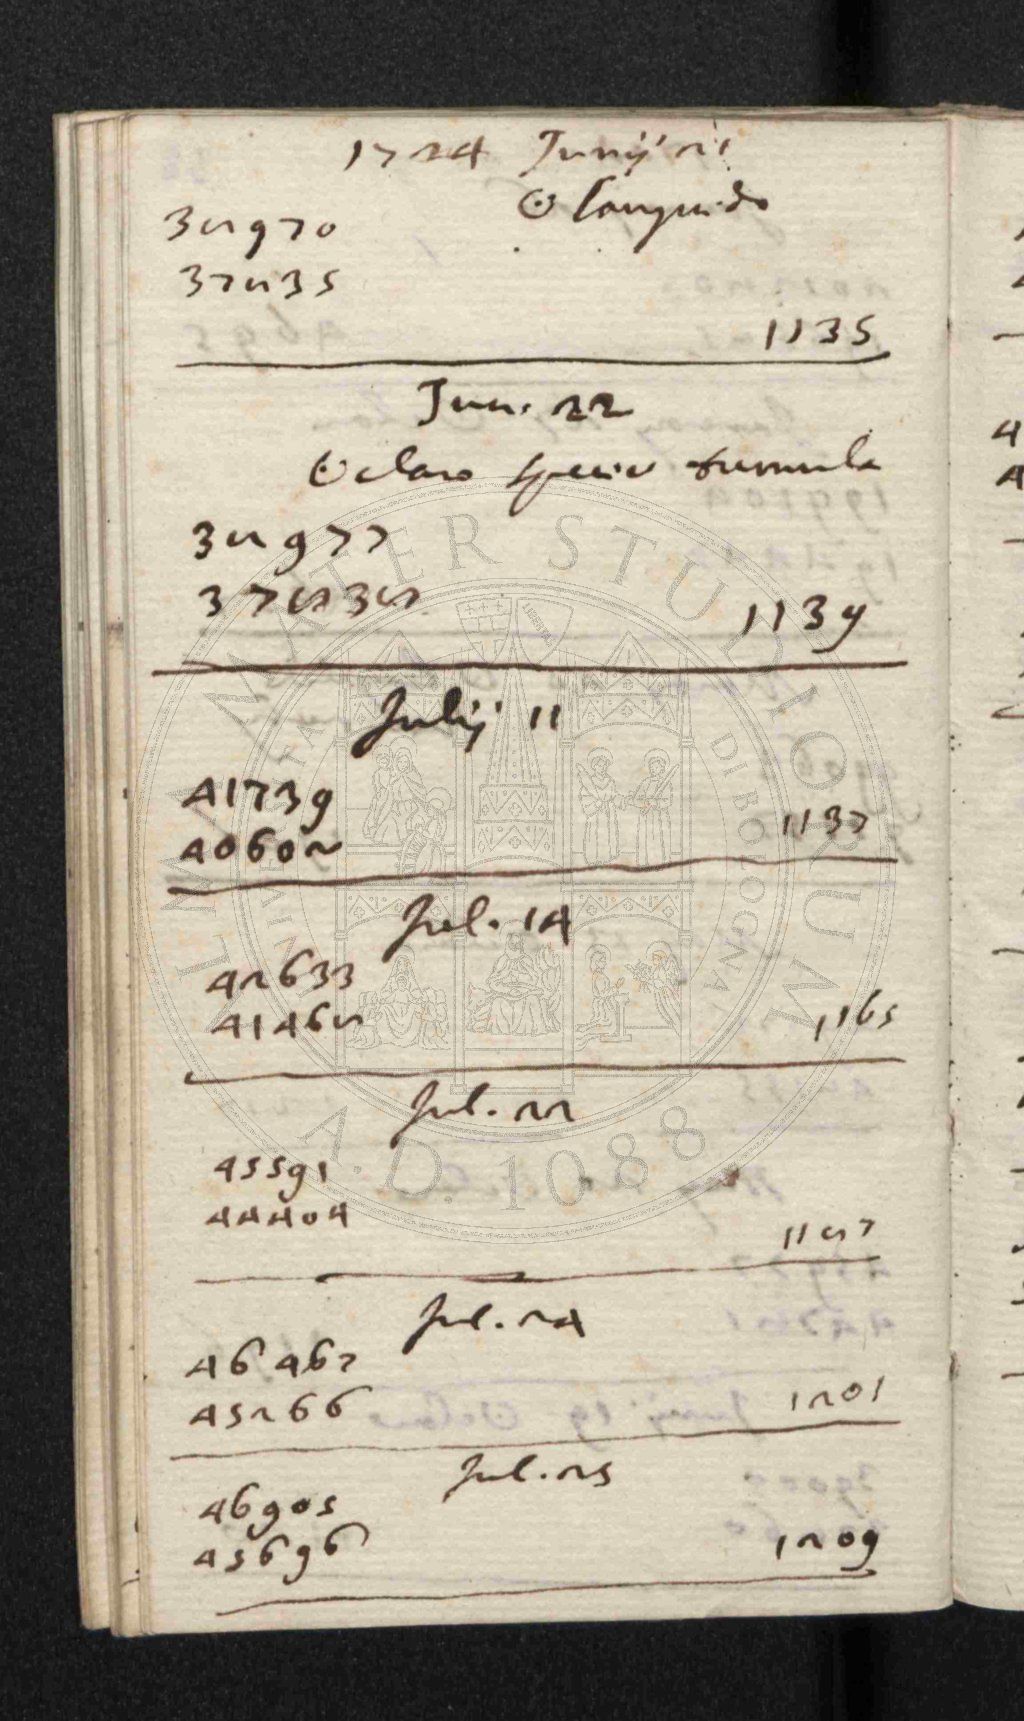 1724 Junij 21
☉ languido
38970
37835
1135
Jun. 22
☉ claro specie tremula
38977
37838
1139
Julij 11
41739
40602
1137
Jul. 14
42633
41468
1165
Jul. 22
45591
44404
1187
Jul. 24
46467
45266
1201
Jul. 25
46905
45696
1209
ALMA MATER STUDIORUM
A.D. 1088
UNIVERSITÀ DI BOLOGNA